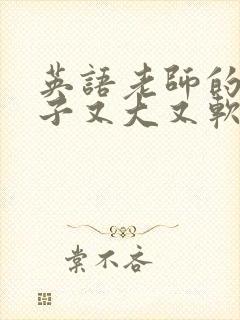 英語老師的
子又大又軟
棠不吝